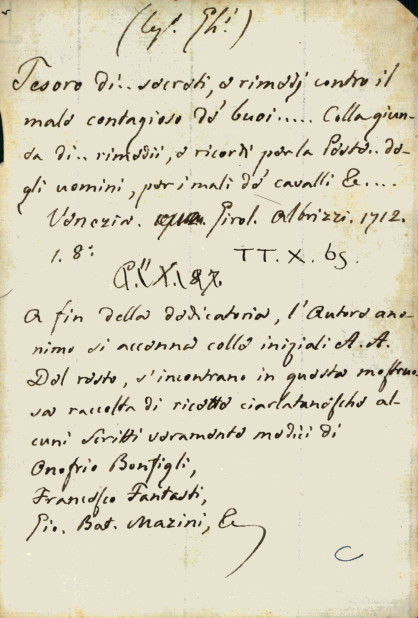 Tesoro di.. secreti, e rimedj contro il
male contagioso de' buoi..... Colla giun-
ta di.. rimedii, e ricordi per la Peste.. de-
gli uomini, per i mali de' cavalli &c....
Venezia. Girol. Albrizzi. 1712.
1. 8.º TT. X. 65.
A fin della dedicatoria, l'Autore ano-
nimo si accenna colle iniziali A. A.
Del resto, s'incontrano in questa mostruo-
sa raccolta di ricette ciarlatanesche al-
cuni scritti veramente medici di
Onofrio Bonfigli,
Francesco Fantasti,
Gio. Bat. Mazini, &c